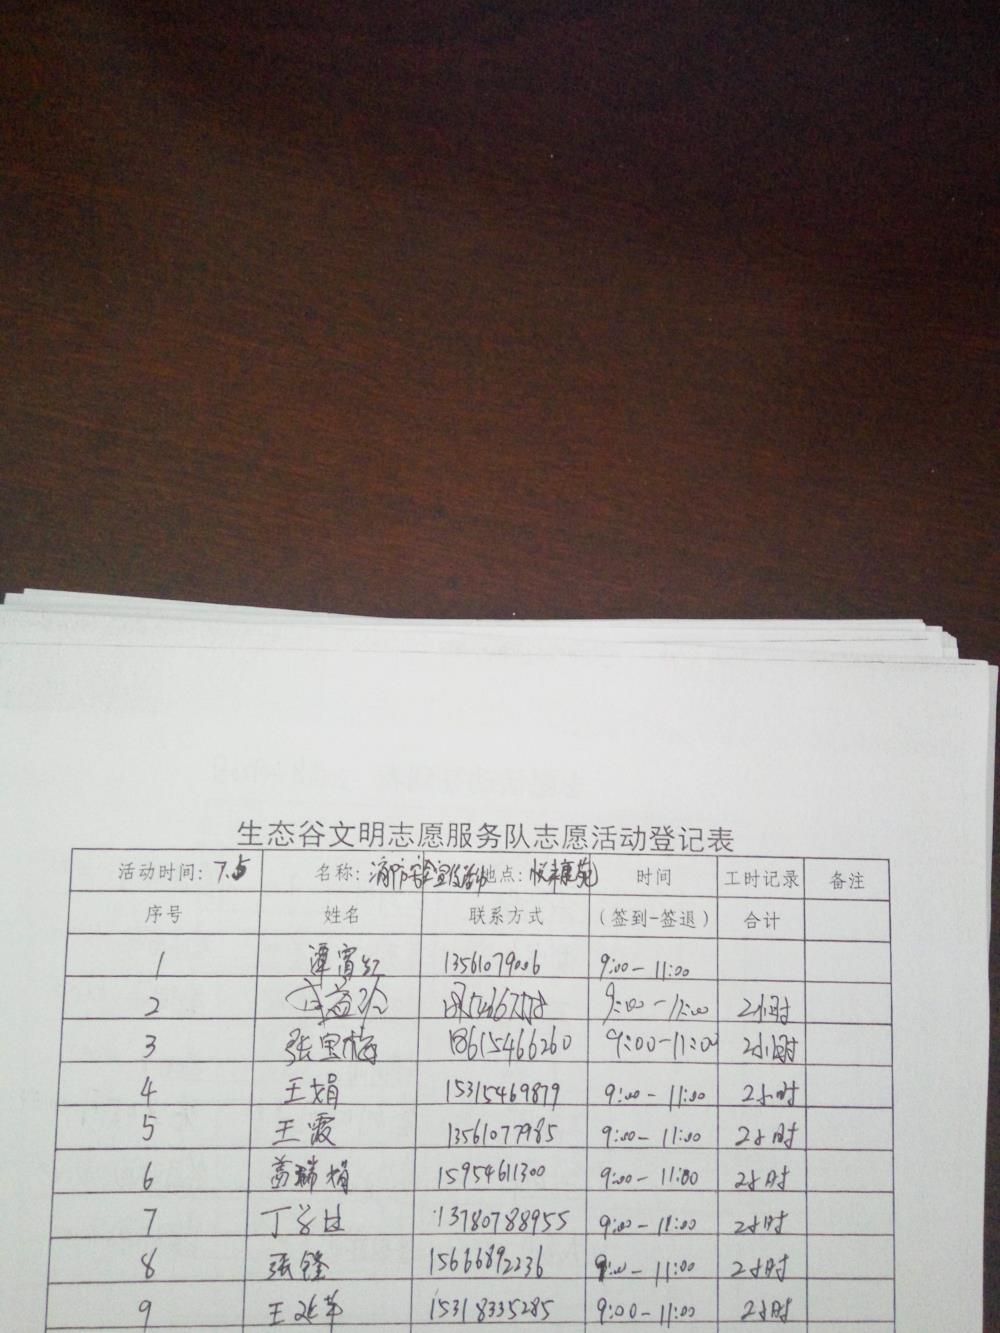 生态谷文明志愿服务队志愿活动登记表
活动时间: 7.5 名称: 消防安全宣传活动 地点: 悦丰康苑 时间 工时记录 备注
序号 姓名 联系方式 (签到-签退) 合计
1 谭霄红 13561079006 9:00-11:00
2 9:00-11:00 2小时
3 张思梅 18615466260 9:00-11:00 2小时
4 王娟 15315469879 9:00-11:00 2小时
5 王霞 13561077985 9:00-11:00 2小时
6 葛瑞娟 15954611300 9:00-11:00 2小时
7 丁 13780788955 9:00-11:00 2小时
8 张锋 15666892236 9:00-11:00 2小时
9 王延苹 15318335285 9:00-11:00 2小时